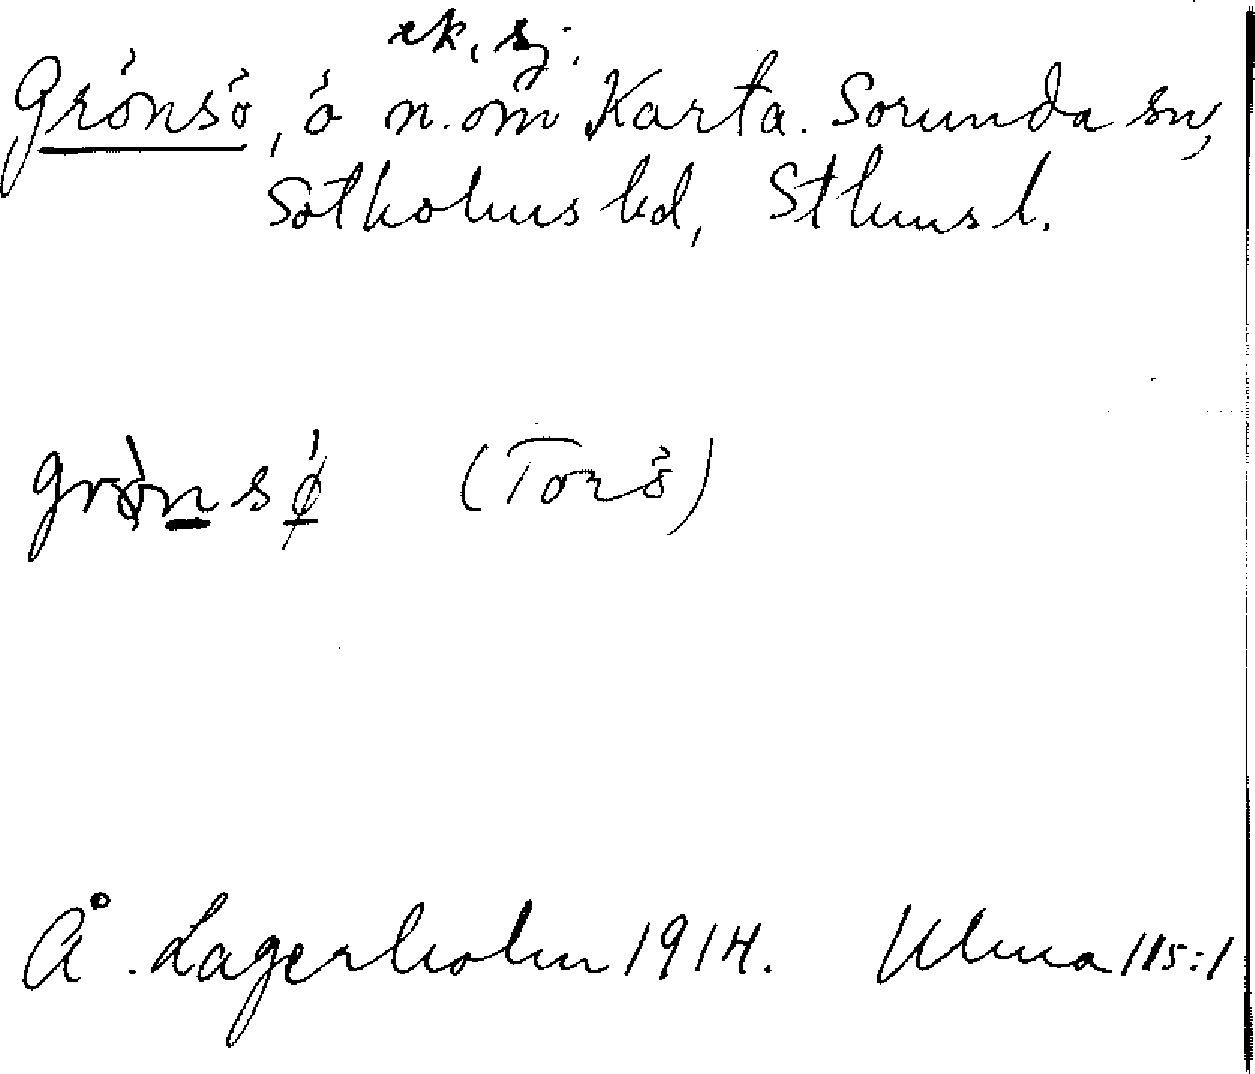 ek, sj.
Grönsö, ö n. om Karta. Sorunda sn,
Sotholms hd, Sthms l.
grò̀nsǿ (Torö)
Å. Lagerholm 1914. Ulma 115:1